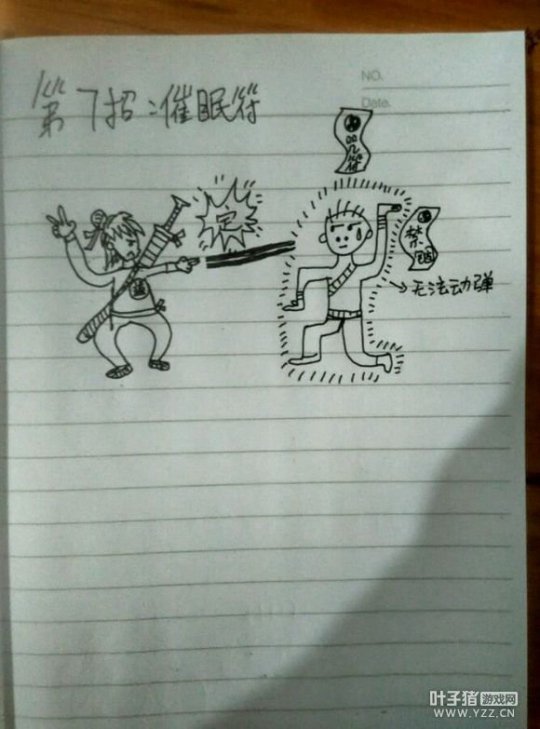 第7招:催眠符
NO.
Date.
定
禁锢
无法动弹
叶子猪 游戏网
WWW.YZZ.CN